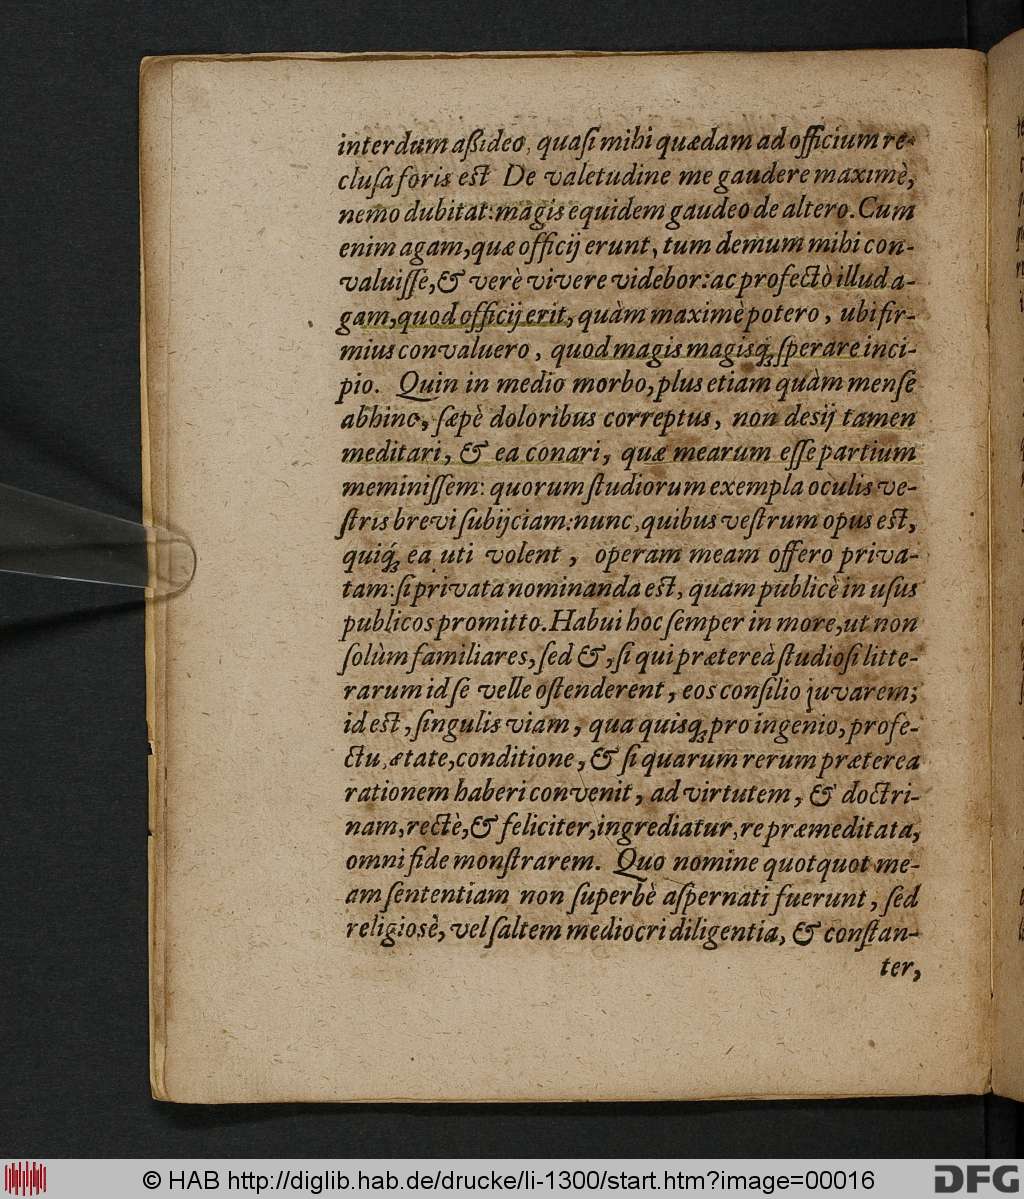 interdum aßideo, quaſi mihi quædam ad officium re-
cluſa foris est De valetudine me gaudere maximè,
nemo dubitat: magis equidem gaudeo de altero. Cum
enim agam, quæ officij erunt, tum demum mihi con-
valuiſſe, & verè vivere videbor: ac profectò illud a-
gam, quod officij erit, quàm maximè potero, ubi fir-
mius convaluero, quod magis magisq́; ſperare inci-
pio. Quin in medio morbo, plus etiam quàm menſe
abhinc, ſæpè doloribus correptus, non desij tamen
meditari, & ea conari, quæ mearum eſſe partium
meminiſſem: quorum ſtudiorum exempla oculis ve-
ſtris brevi ſubijciam: nunc, quibus veſtrum opus eſt,
quiq́; ea uti volent, operam meam offero priva-
tam: ſi privata nominanda eſt, quam publicè in uſus
publicos promitto. Habui hoc ſemper in more, ut non
ſolùm familiares, ſed &, ſi qui prætereà ſtudioſi litte-
rarum id ſe velle oſtenderent, eos conſilio juvarem;
id eſt, ſingulis viam, qua quisq; pro ingenio, profe-
ctu, ætate, conditione, & ſi quarum rerum præterea
rationem haberi convenit, ad virtutem, & doctri-
nam, rectè, & feliciter, ingrediatur, re præmeditata,
omni fide monſtrarem. Quo nomine quotquot me-
am ſententiam non ſuperbè aſpernati fuerunt, ſed
religiosè, vel ſaltem mediocri diligentia, & conſtan-
ter,
© HAB http://diglib.hab.de/drucke/li-1300/start.htm?image=00016
DFG